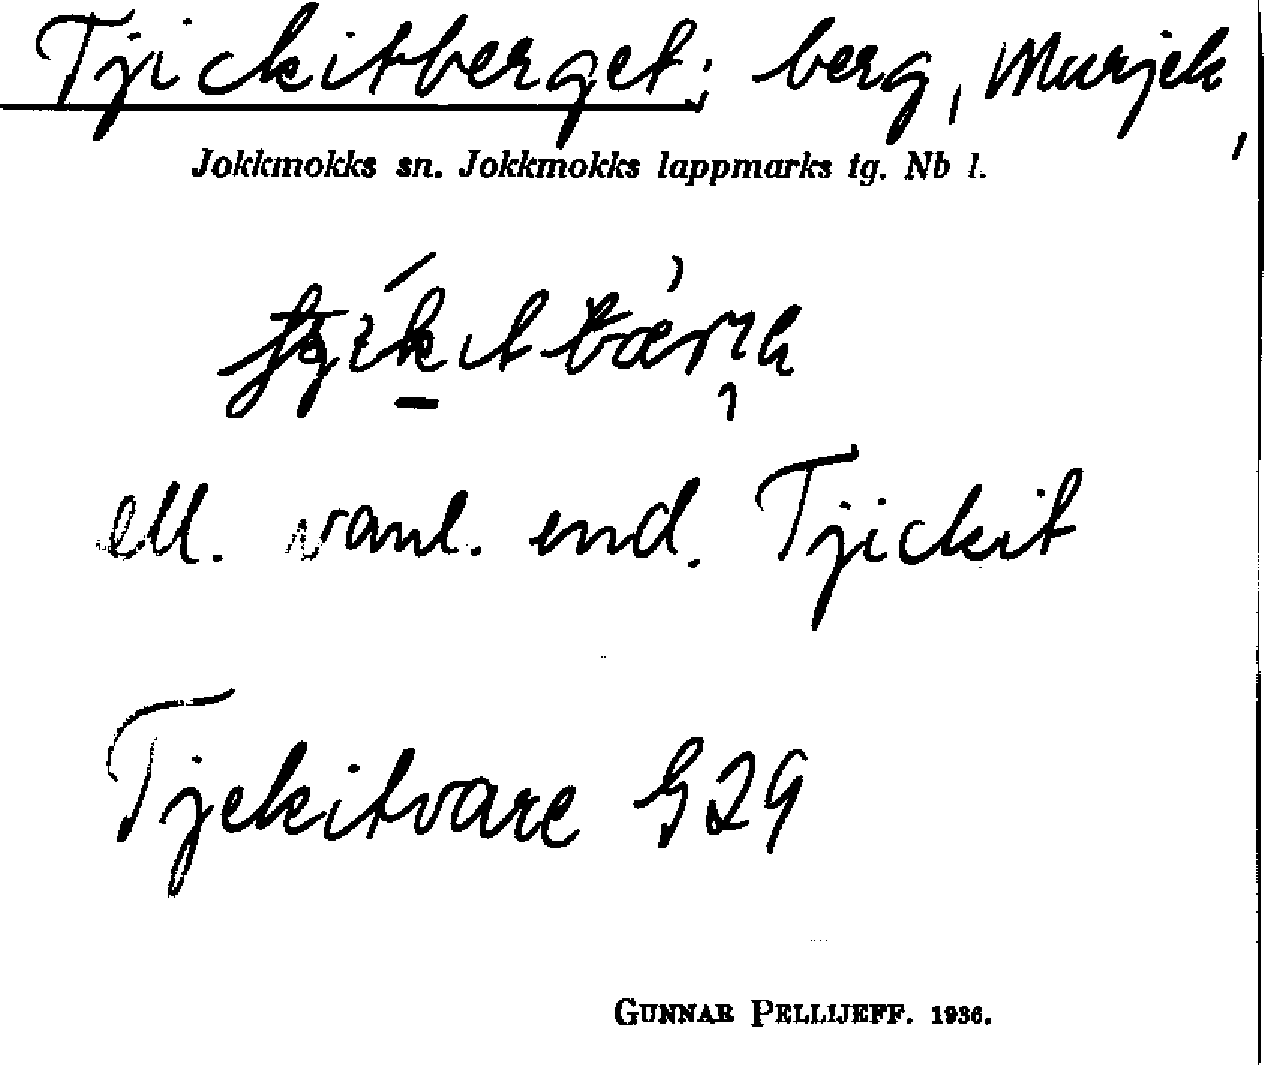 Tjickitberget; berg, Murjek,
Jokkmokks sn. Jokkmokks lappmarks tg. Nb l.
ell. vanl. end. Tjickit
Tjekitvare G29
GUNNAR PELLIJEFF. 1936.